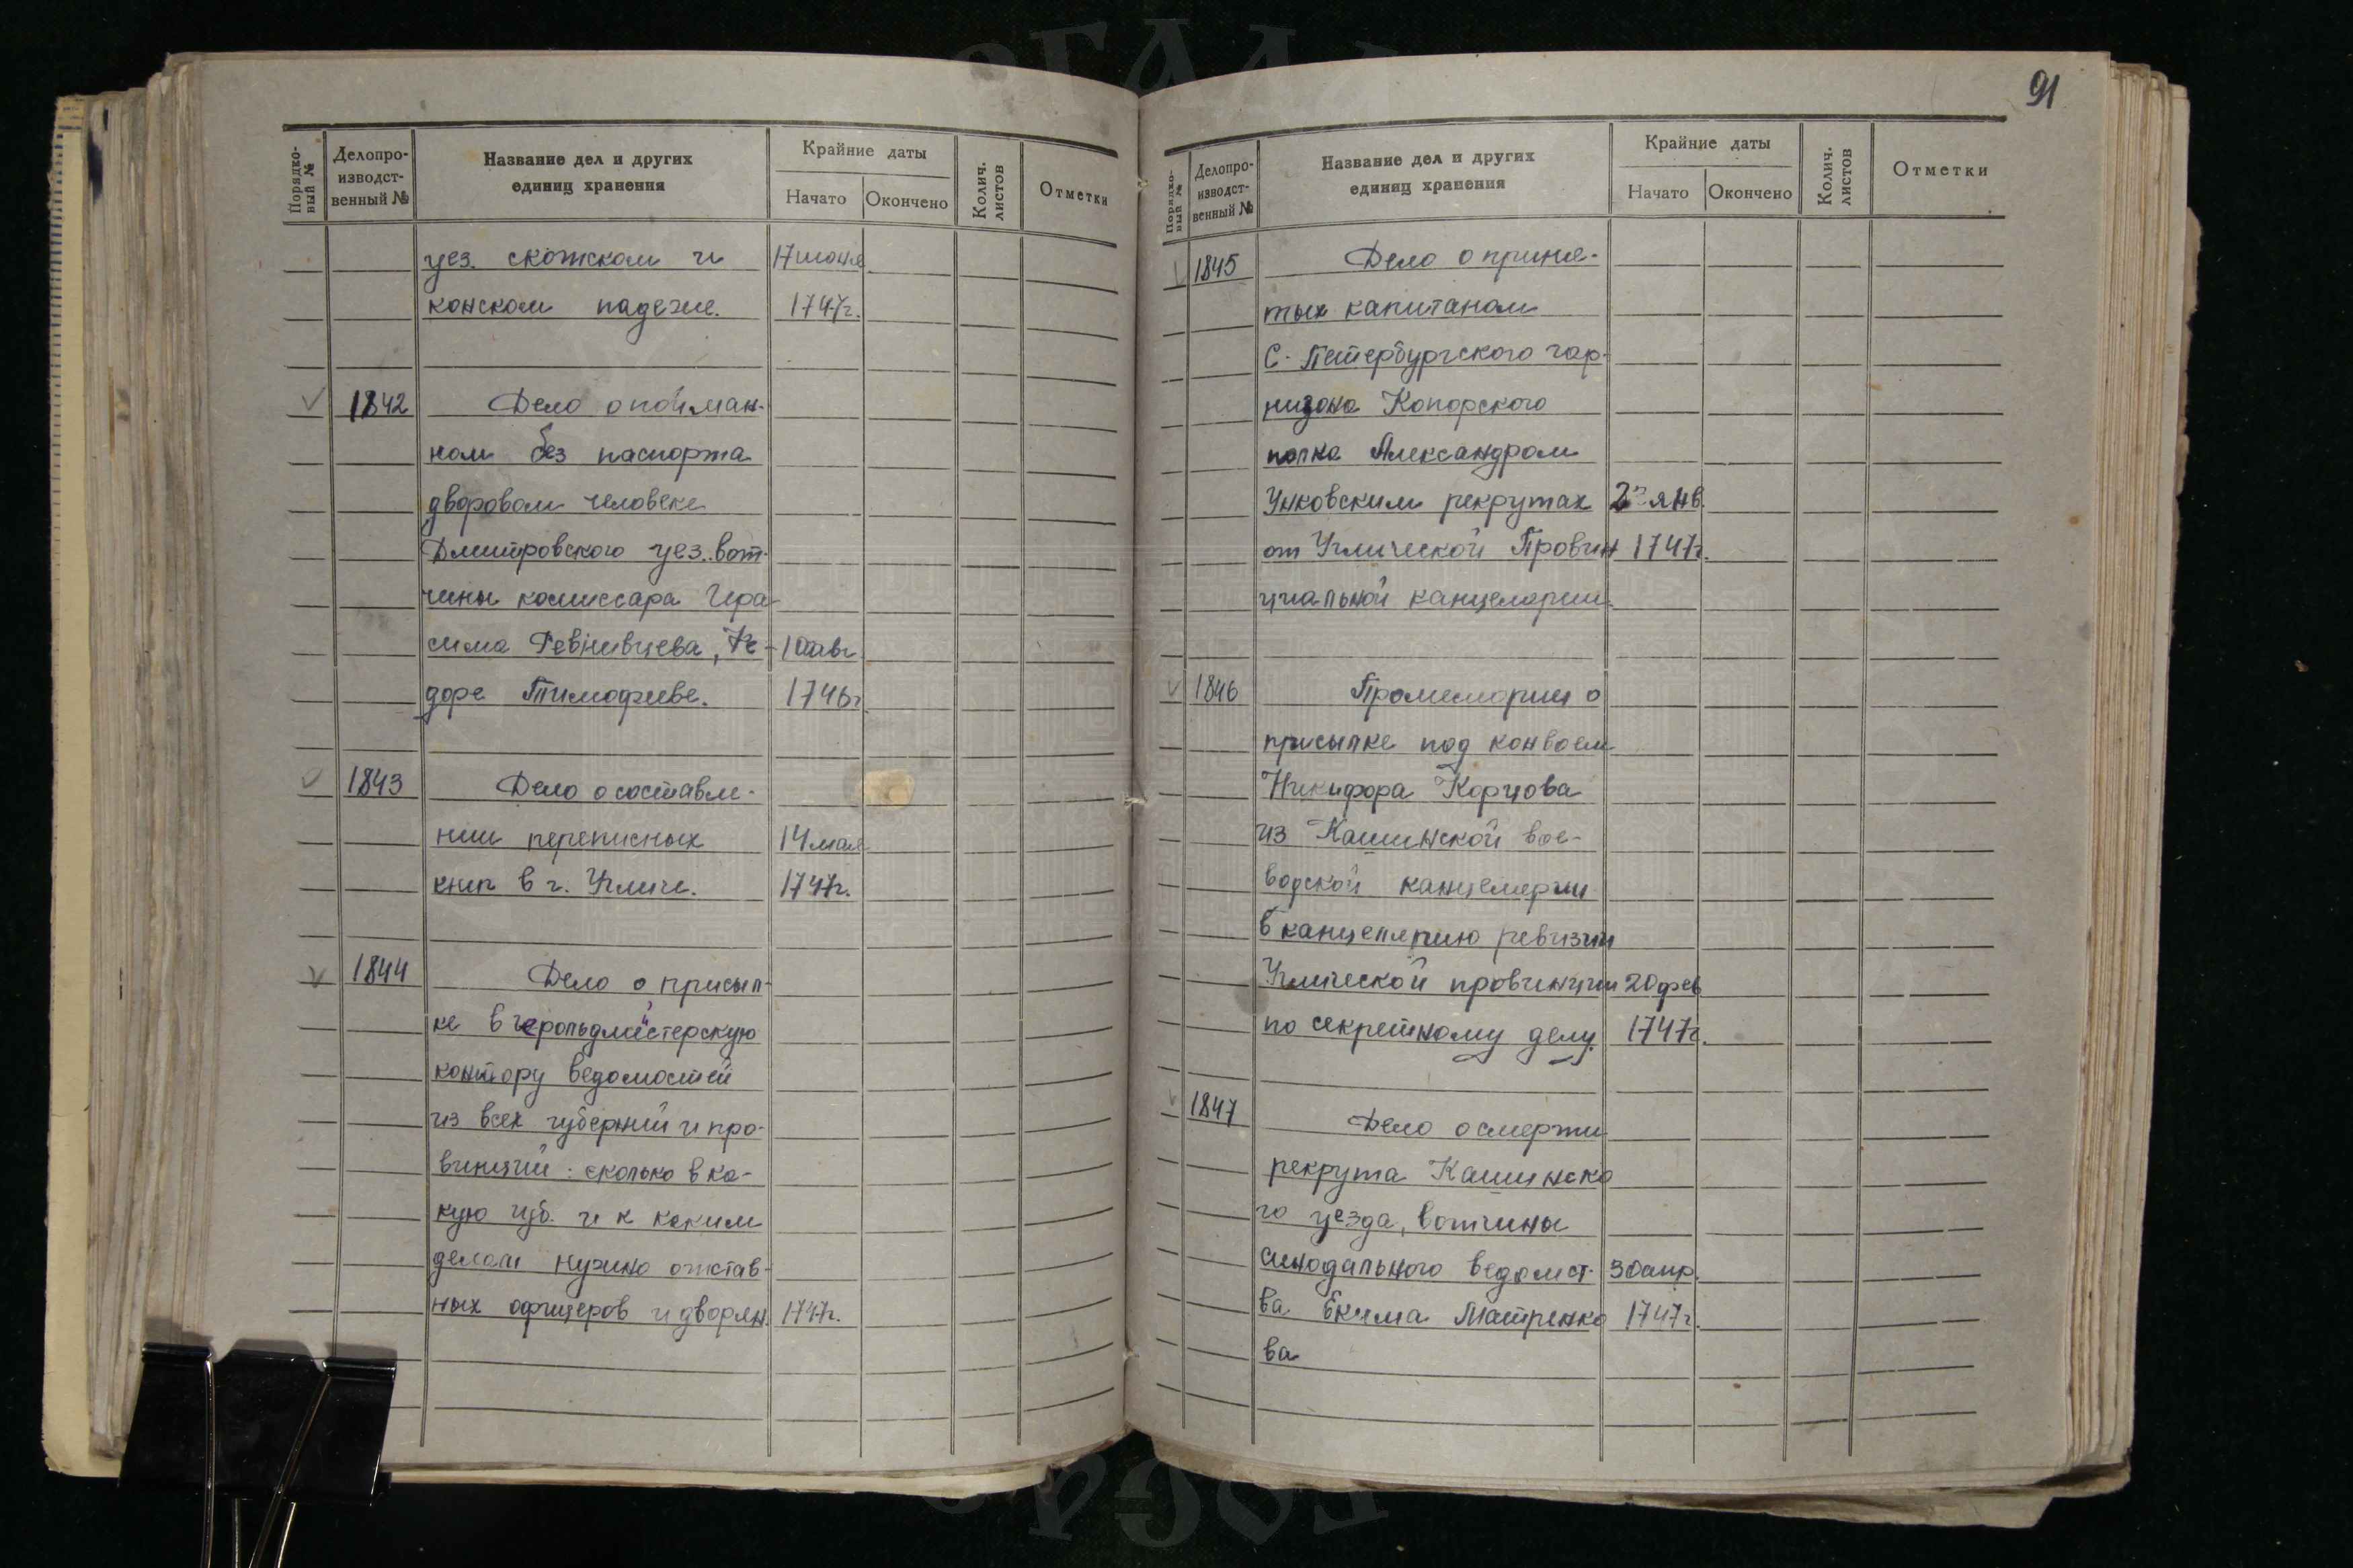 91
Порядко-
вый №
Делопро-
изводст-
венный №
Название дел и других
единиц хранения
Крайние даты
Начато
Окончено
Колич.
листов
Отметки
уез. скотском и 17 июня
конском падеже. 1747г.
1842 Дело о пойман-
ном без паспорта
дворовом человеке
Дмитровского уез. вот-
чины комиссара Гера-
сима Ревнивцева, Фе- 10 авг
доре Тимофееве. 1746г.
1843 Дело о составле-
нии переписных 14 мая
книг в г. Угличе. 1747г.
1844 Дело о присыл-
ке в герольдмейстерскую
контору ведомостей
из всех губерний и про-
винций: сколько в ка-
кую губ. и к каким
делам нужно отстав-
ных офицеров и дворян. 1747г.
Порядко-
вый №
Делопро-
изводст-
венный №
Название дел и других
единиц хранения
Крайние даты
Начато
Окончено
Колич.
листов
Отметки
1845 Дело о приня-
тых капитаном
С-Петербургского гар-
низона Копорского
полка Александром
Унковским рекрутах янв.
от Угличской Провин 1747г.
циальной канцелярии.
1846 Промемории о
присылке под конвоем
Никифора Корцова
из Кашинской вое-
водской канцелярии
в канцелярию ревизии
Угличской провинции 20 фев
по секретному делу. 1747г.
1847 Дело о смерти
рекрута Кашинско
го уезда, вотчины
синодального ведомст- 30 апр.
ва Екима Матренко 1747г.
ва